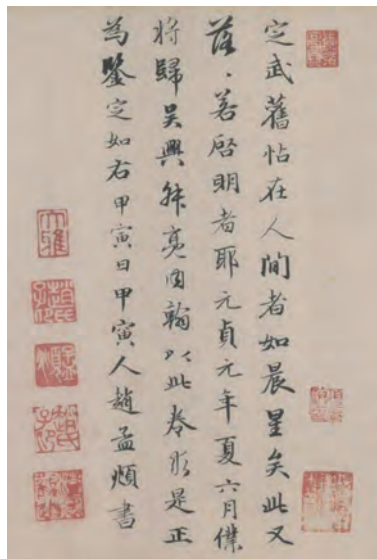 定武舊帖在人間者如晨星矣此又
落〻若啓明者耶元貞元年夏六月僕
將歸吳興舟𡩋周翰以此卷求是正
為鑒定如右甲寅日甲寅人趙孟頫書
大雅
趙